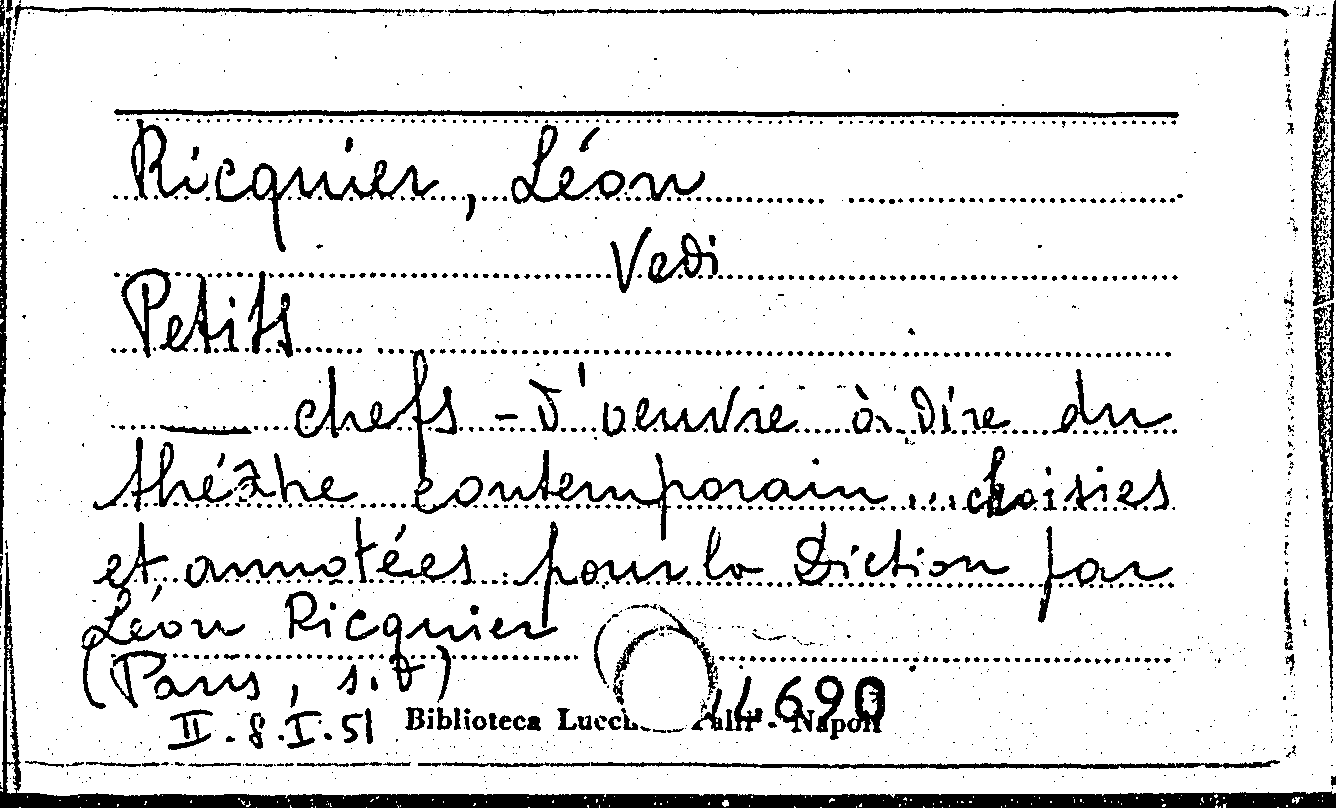 Ricquier, Léon
Vedi
Petits
— chefs - d'oeuvre à dire du
théâtre contemporain ... choisies
et annotées pour la Diction par
Léon Ricquier
(Paris, s.d)
II.8.I.51 Biblioteca Napoli